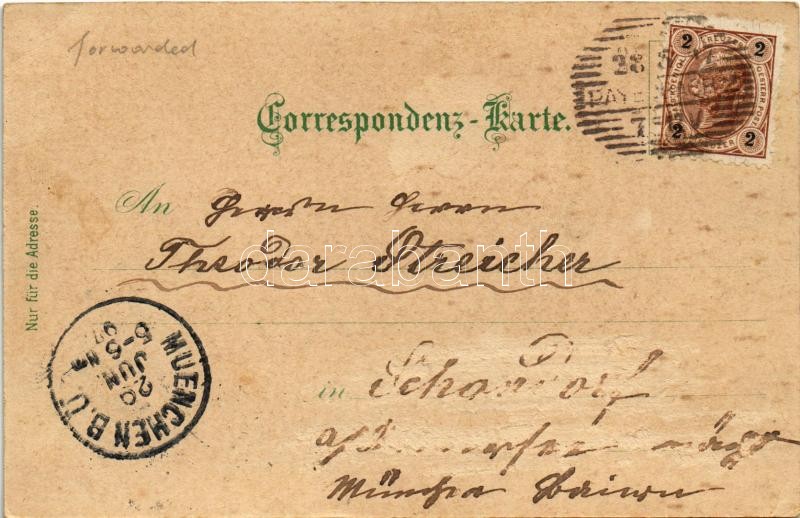 forwarded
2 2
KREUZER OESTERR. POST
2 2
28
PAYE
7
Correspondenz-Karte.
An Herrn Herrn
Theodor Streicher
darabanth
in Schondorf
am Ammersee
München Baiern
Nur für die Adresse.
MUENCHEN B.Ü.
29
JUN.
5-6 N
97